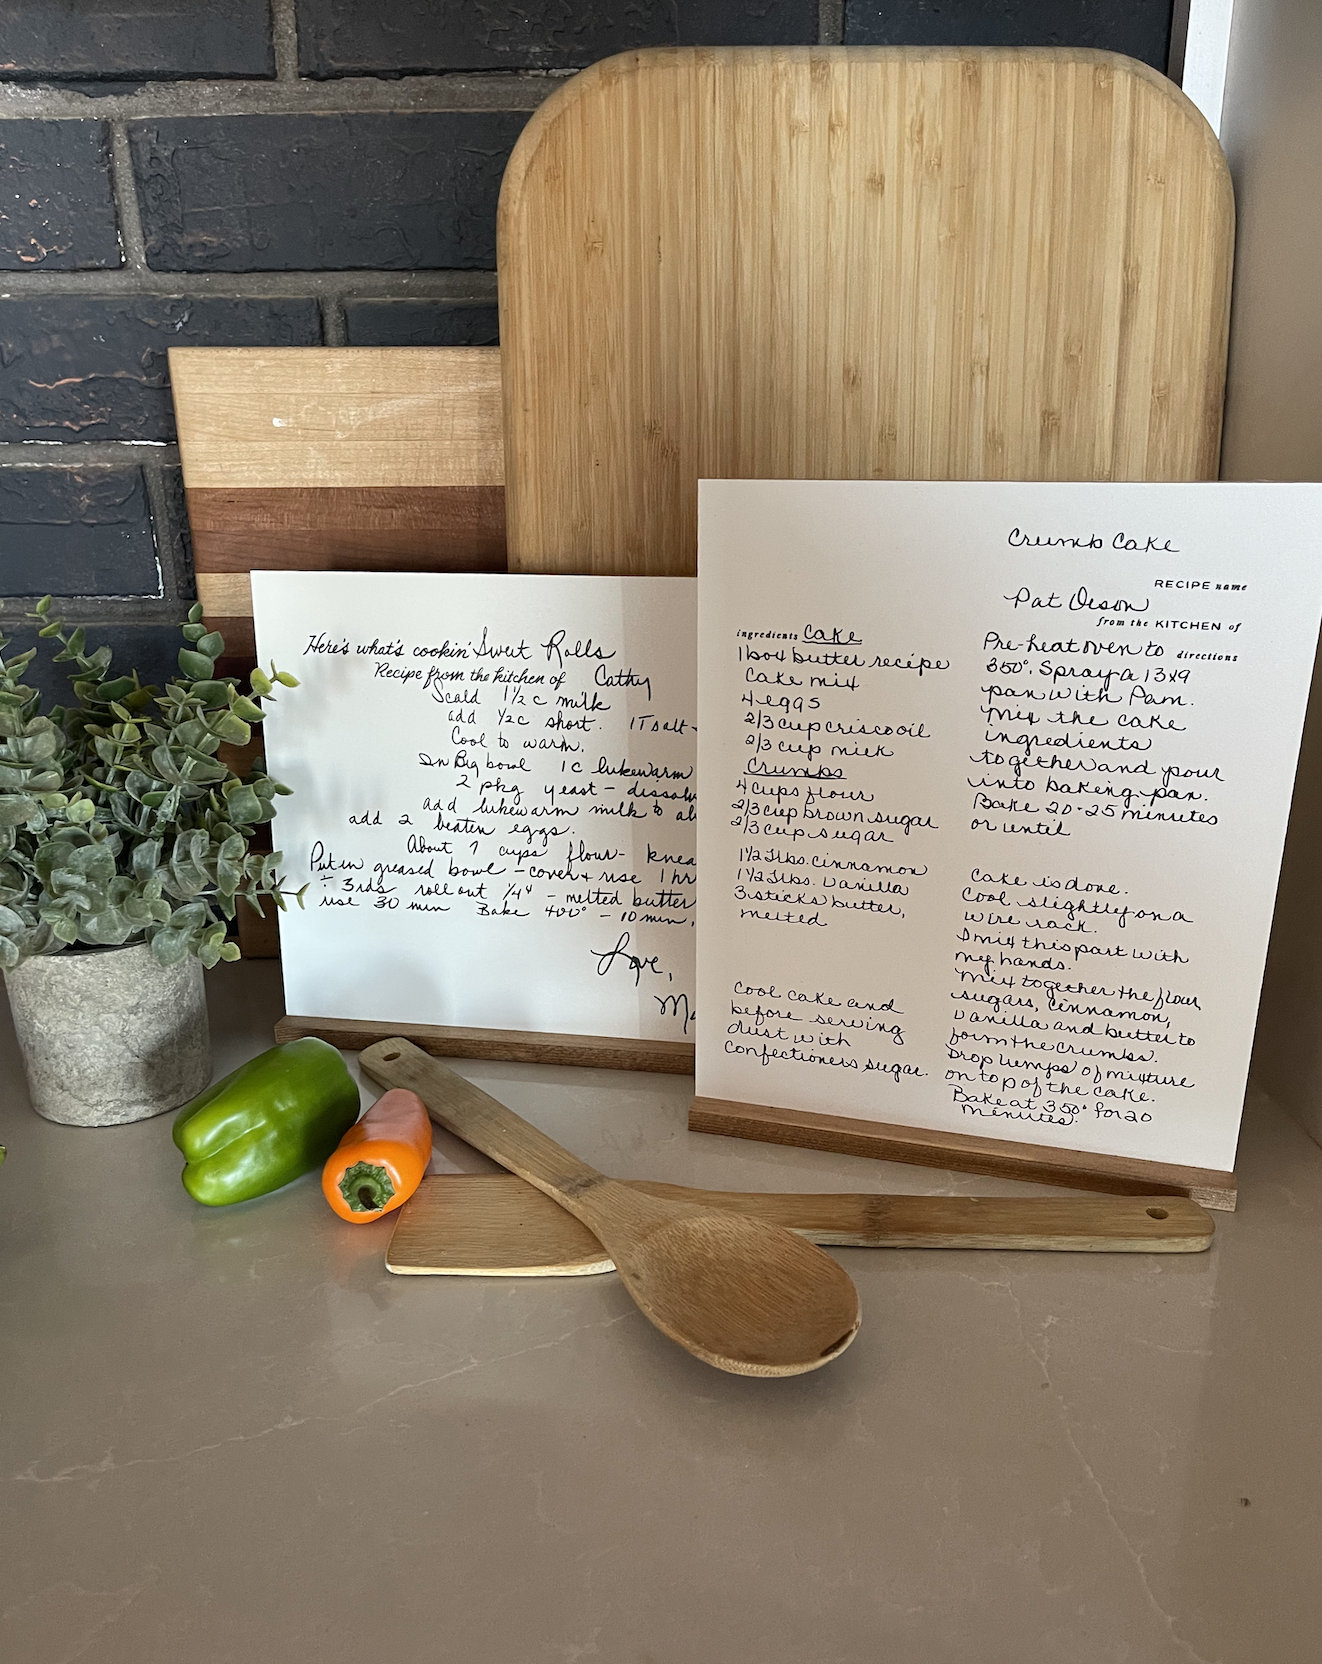 Here's what's cookin' Sweet Rolls
Recipe from the kitchen of Cathy
Scald 1½ c milk
add ½c short. 1T salt-
Cool to warm.
In Big bowl 1c lukewarm
2 pkg yeast - dissolv
add lukewarm milk to ab
add 2 beaten eggs.
About 7 cups flour- knea
Put in greased bowl - cover & rise 1 hr
÷ 3rds roll out ¼" - melted butter
rise 30 min Bake 400° - 10 min,
Love,
Crumb Cake
RECIPE name
Pat
from the KITCHEN of
ingredients Cake
1 box butter recipe
cake mix
4 eggs
2/3 cup crisco oil
2/3 cup milk
Crumbs
4 cups flour
2/3 cup brown sugar
2/3 cup sugar
1½ Tlbs. cinnamon
1½ Tlbs. vanilla
3 sticks butter,
melted
Cool cake and
before serving
dust with
confectioners sugar.
Pre-heat oven to directions
350°. Spray a 13x9
pan with Pam.
Mix the cake
ingredients
together and pour
into baking pan.
Bake 20-25 minutes
or until
cake is done.
Cool slightly on a
wire rack.
I mix this part with
my hands.
Mix together the flour,
sugars, cinnamon,
vanilla and butter to
form the crumbs.
Drop lumps of mixture
on top of the cake.
Bake at 350° for 20
minutes.